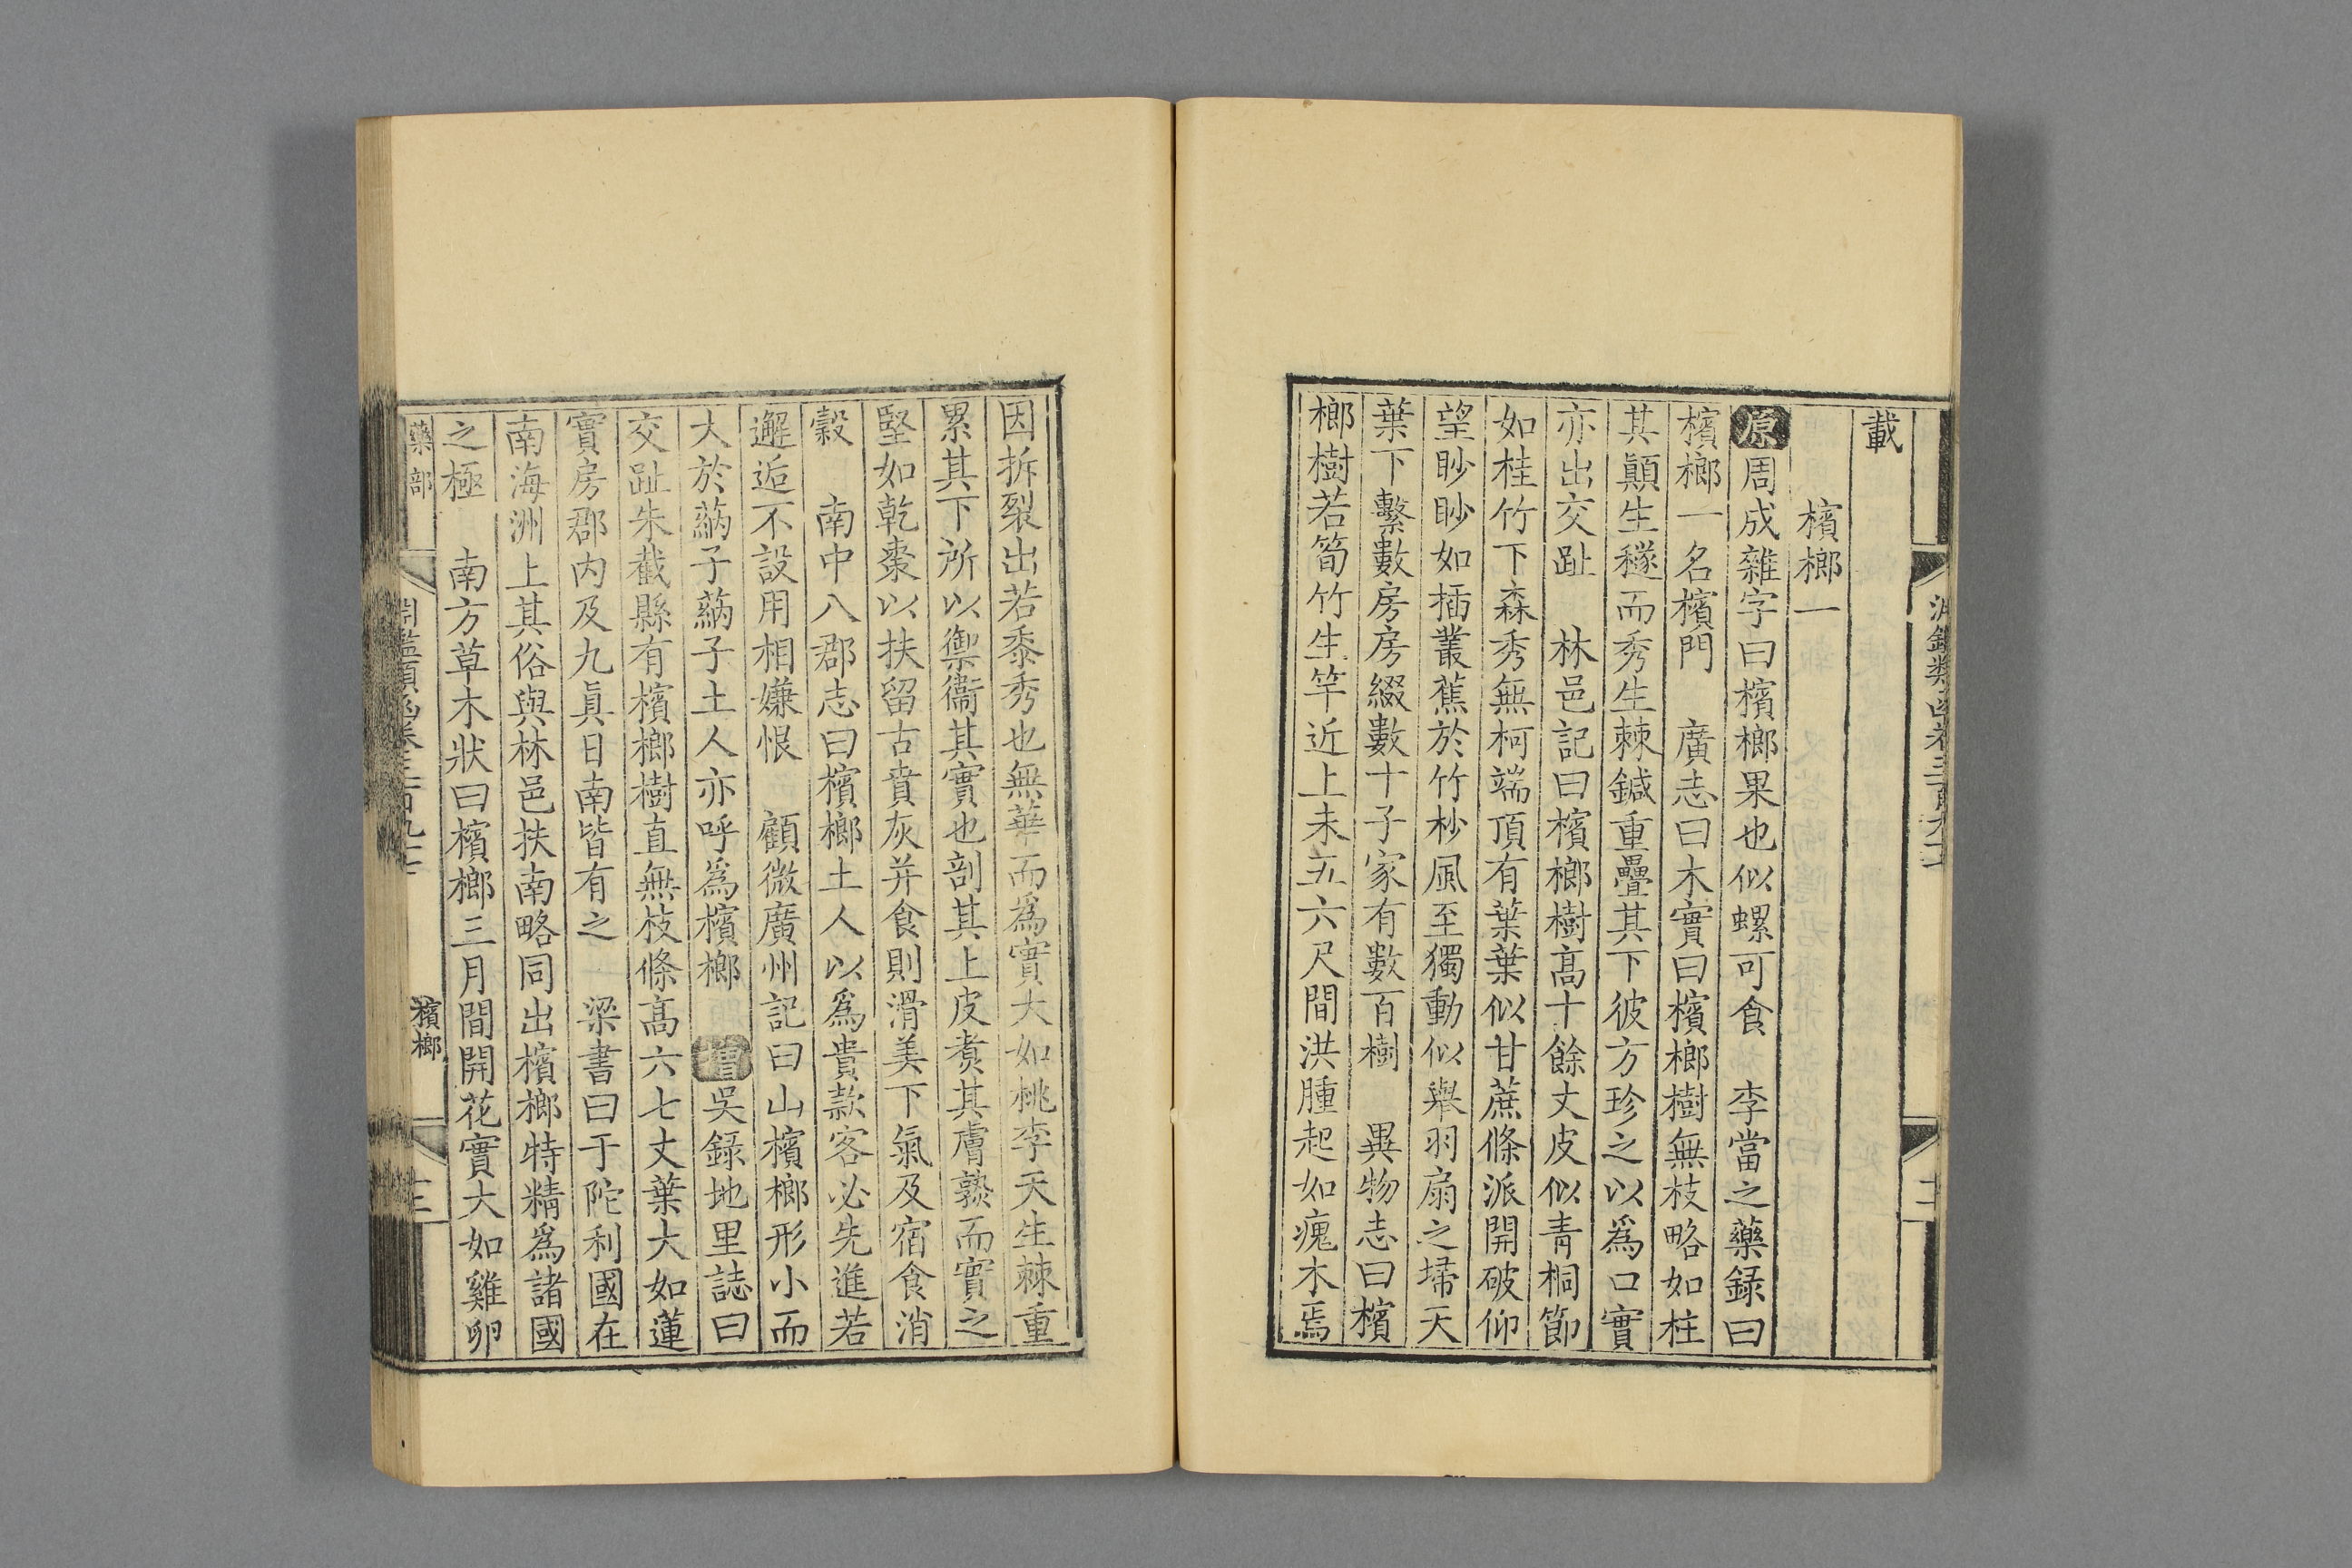 載
檳榔一
原周成雜字曰檳榔果也似螺可食　李當之藥録曰
檳榔一名檳門　廣志曰木實曰檳榔樹無枝略如柱
其顛生穟而秀生棘鍼重疊其下彼方珍之以爲口實
亦出交趾　林邑記曰檳榔樹高十餘丈皮似青桐節
如桂竹下森秀無柯端頂有葉葉似甘蔗條派開破仰
望眇眇如插叢蕉於竹杪風至獨動似舉羽扇之埽天
葉下繫數房房綴數十子家有數百樹　異物志曰檳
榔樹若筍竹生竿近上未五六尺間洪腫起如瘣木焉
因拆裂出若黍秀也無華而爲實大如桃李天生棘重
累其下所以禦衞其實也剖其上皮煑其膚熟而實之
堅如乾棗以扶留古賁灰并食則滑美下氣及宿食消
穀　南中八郡志曰檳榔土人以爲貴款客必先進若
邂逅不設用相嫌恨　顧微廣州記曰山檳榔形小而
大於蒳子蒳子土人亦呼爲檳榔　增吳録地里誌曰
交趾朱䳒縣有檳榔樹直無枝條高六七丈葉大如蓮
實房郡内及九眞日南皆有之　梁書曰于陀利國在
南海洲上其俗與林邑扶南略同出檳榔特精爲諸國
之極　南方草木狀曰檳榔三月間開花實大如雞卵
藥部　檳榔